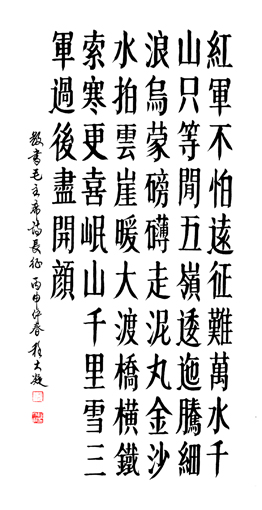 紅軍不怕遠征難萬水千
山只等閒五嶺逶迤騰細
浪烏蒙磅礴走泥丸金沙
水拍雲崖暖大渡橋橫鐵
索寒更喜岷山千里雪三
軍過後盡開顏
敬書毛主席詩長征 丙申仲春